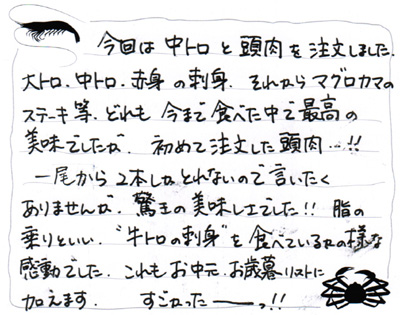 今回は中トロと頭肉を注文しました.
大トロ.中トロ.赤身の刺身.それからマグロカマの
ステーキ等.どれも今まで食べた中で最高の
美味でしたが.初めて注文した頭肉…!!
一尾から2本しかとれないので言いたく
ありませんが.驚きの美味しエでした!!脂の
乗りといい."牛トロの刺身"を食べているかの様な
感動でした.これもお中元.お歳暮リストに
加えます. すごかったーーっ!!